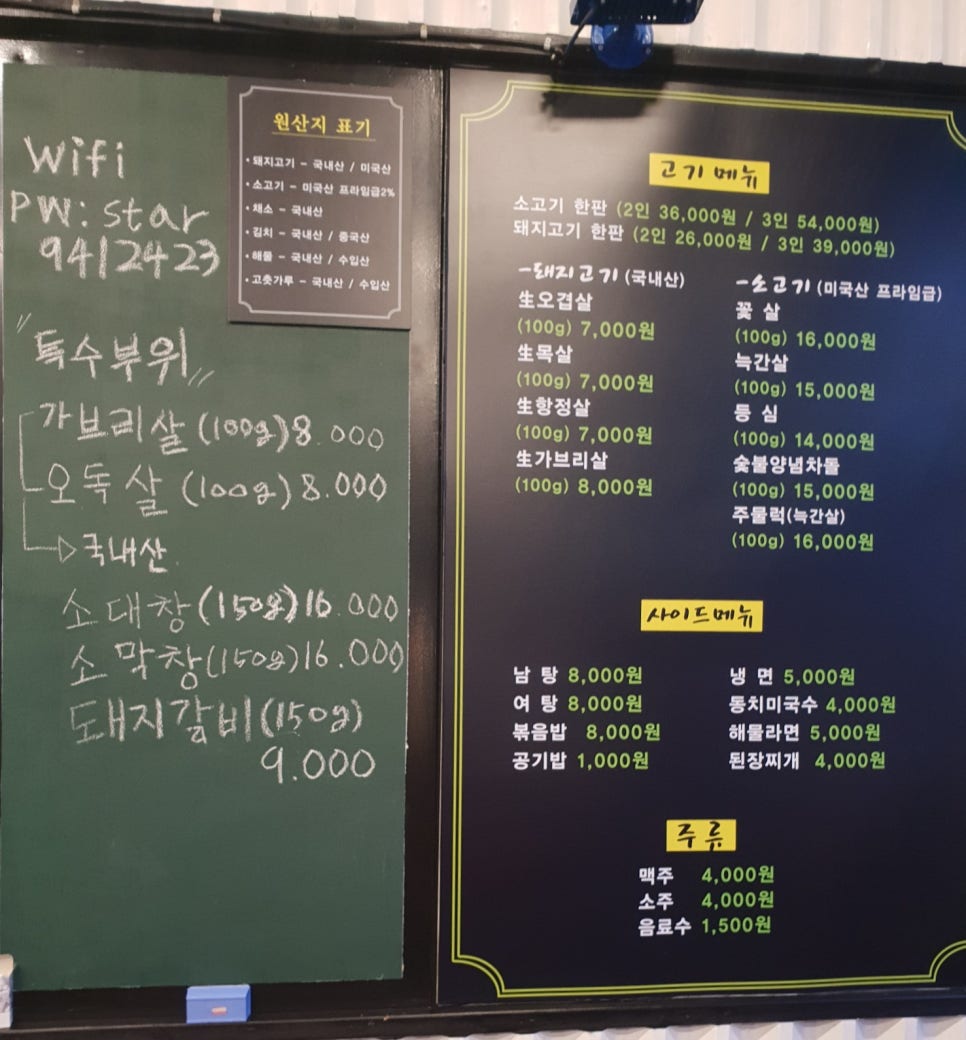 Wifi
PW: star
9412423
"특수부위"
가브리살 (100g) 8.000
오독살 (100g) 8.000
국내산
소대창 (150g) 16.000
소막창 (150g) 16.000
돼지갈비 (150g)
9.000
원산지 표기
• 돼지고기 - 국내산 / 미국산
• 소고기 - 미국산 프라임급2%
• 채소 - 국내산
• 김치 - 국내산 / 중국산
• 해물 - 국내산 / 수입산
• 고춧가루 - 국내산 / 수입산
고기 메뉴
소고기 한판 (2인 36,000원 / 3인 54,000원)
돼지고기 한판 (2인 26,000원 / 3인 39,000원)
-돼지고기 (국내산)
生오겹살
(100g) 7,000원
生목살
(100g) 7,000원
生항정살
(100g) 7,000원
生가브리살
(100g) 8,000원
-소고기 (미국산 프라임급)
꽃 살
(100g) 16,000원
늑간살
(100g) 15,000원
등 심
(100g) 14,000원
숯불양념차돌
(100g) 15,000원
주물럭(늑간살)
(100g) 16,000원
사이드메뉴
남 탕 8,000원
여 탕 8,000원
볶음밥 8,000원
공기밥 1,000원
냉 면 5,000원
동치미국수 4,000원
해물라면 5,000원
된장찌개 4,000원
주 류
맥주 4,000원
소주 4,000원
음료수 1,500원